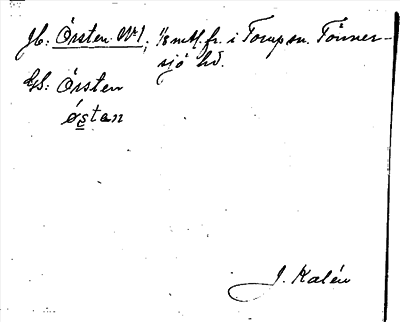 Jb: Örsten No 1; 1/8 mtl. fr. i Torup sn. Tönner-
sjö hd.
Gs: Örsten
östan
J. Kalén